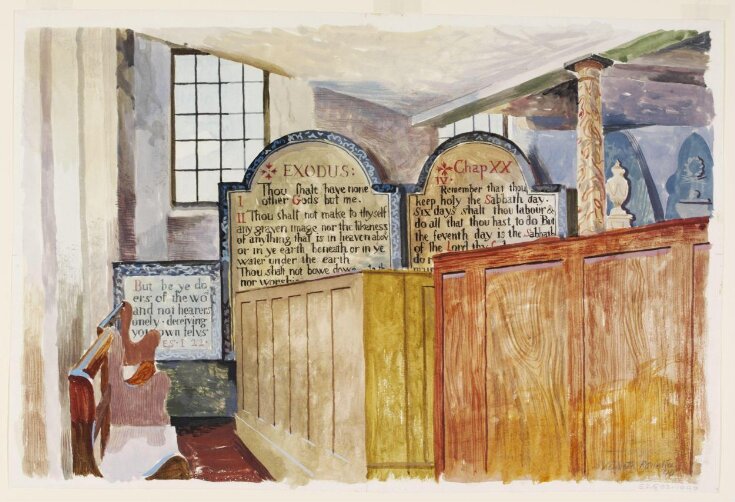 EXODUS:
I Thou shalt have none
other Gods but me.
II Thou shalt not make to thyself
any graven image nor the likeness
of anything that is in heaven abov
or in ye earth beneath or in ye
water under the earth
Thou shalt not bowe down
nor worship
Chap XX
IV.
Remember that thou
keep holy the Sabbath day.
Six days shalt thou labour &
do all that thou hast to do But
the seventh day is the Sabbath
of the Lord thy
do
But be ye do
ers of the wo
and not hearers
onely · deceiving
your own selvs
ES · I 22 ·